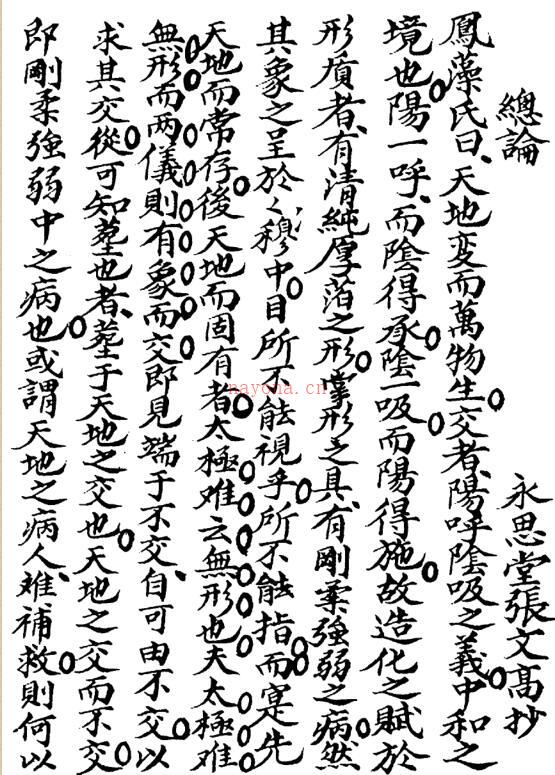 總論
永思堂張文高抄
鳳藻氏曰、天地変而萬物生。交者、陽呼陰吸之義。中和之
境也。陽一呼、而陰得承。陰一吸而陽得施。故造化之賦於
形质者、有清純厚萡之形。掌形之具、有剛柔強弱之病。然
其象之呈於穆中。目所不能視乎。所不能指。而寔先
天地而常存。後天地而固有者。太極难云無形也。夫太極难
無形而两儀則有象。而交即見端于不交、自可由不交。以
求其交。從可知塟也者、塟于天地之交也。天地之交而不交。
即剛柔強弱中之病也。或謂天地之病人、难補救。則何以
nayona.cn